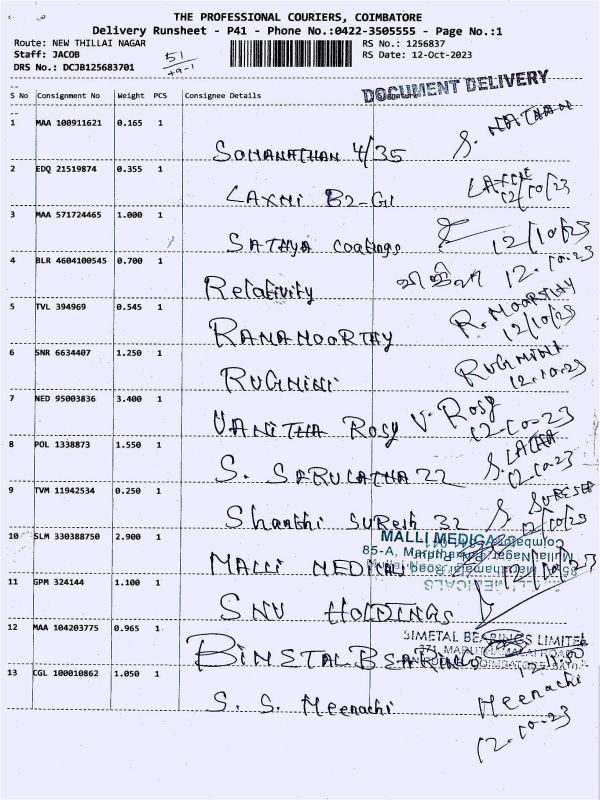 THE PROFESSIONAL COURIERS, COIMBATORE
Delivery Runsheet - P41 - Phone No.:0422-3505555 - Page No.:1
Route: NEW THILLAI NAGAR RS No.: 1256837
Staff: JACOB 51 RS Date: 12-Oct-2023
DRS No.: DCJB125683701 +9-1
DOCUMENT DELIVERY
S No Consignment No Weight PCS Consignee Details
1 MAA 100911621 0.165 1 SOMANATHAN 4/35 S. NATHAN
2 EDQ 21519874 0.355 1 LAXMI B2-G1 12/10/23
3 MAA 571724465 1.000 1 SATHYA Coatings 12/10/23
4 BLR 4604100545 0.700 1 Relativity 12.10.23
5 TVL 394969 0.545 1 RAMAMOORTHY R. MOORTHY 12/10/23
6 SNR 6634407 1.250 1 RUGMINI RUGMINI 12.10.23
7 NED 95003836 3.400 1 VANITHA Rosy V. Rosy 12-10-23
8 POL 1338873 1.550 1 S. SARULATHA 22 S. LATHA 12-10-23
9 TVM 11942534 0.250 1 Shanthi SURESH 32 S. SURESH 12/10/23
10 SLM 330388750 2.900 1 MALLI MEDICAL MALLI MEDICALS 12/10/23
85-A,
11 GPM 324144 1.100 1 SNV HOLDINGS
12 MAA 104203775 0.965 1 BIMETAL BEARINGS BIMETAL BEARINGS LIMITED
13 CGL 100010862 1.050 1 S. S. Meenachi Meenachi
12.10.23